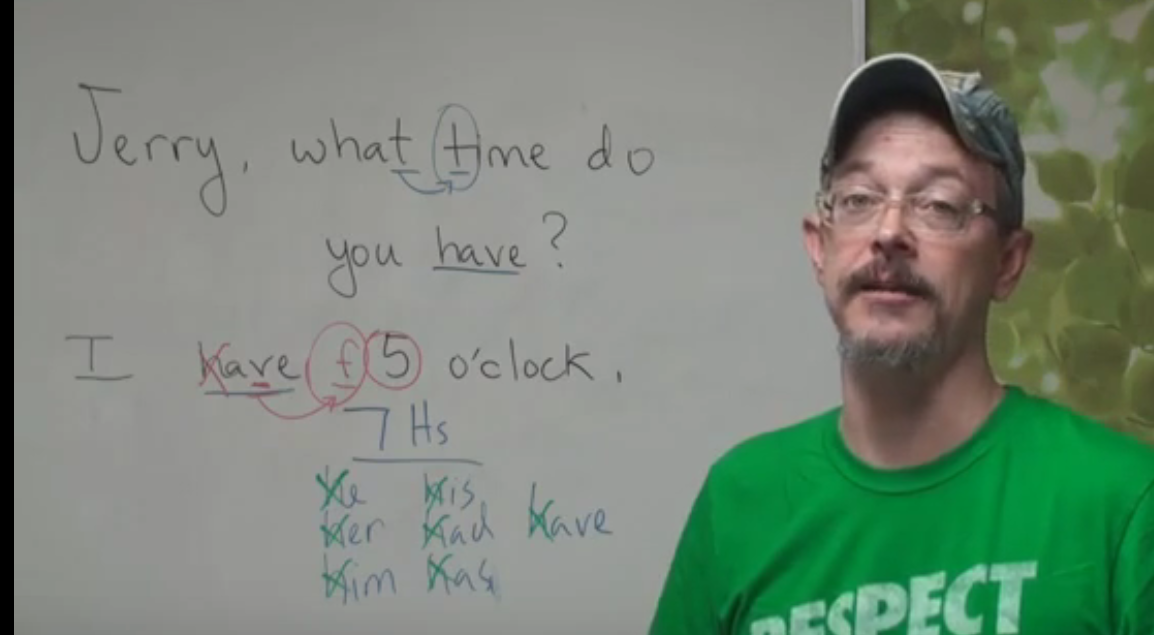 Jerry, what time do
you have?
I have f 5 o'clock.
7 Hs
He His
Her Had Have
Him Has
RESPECT